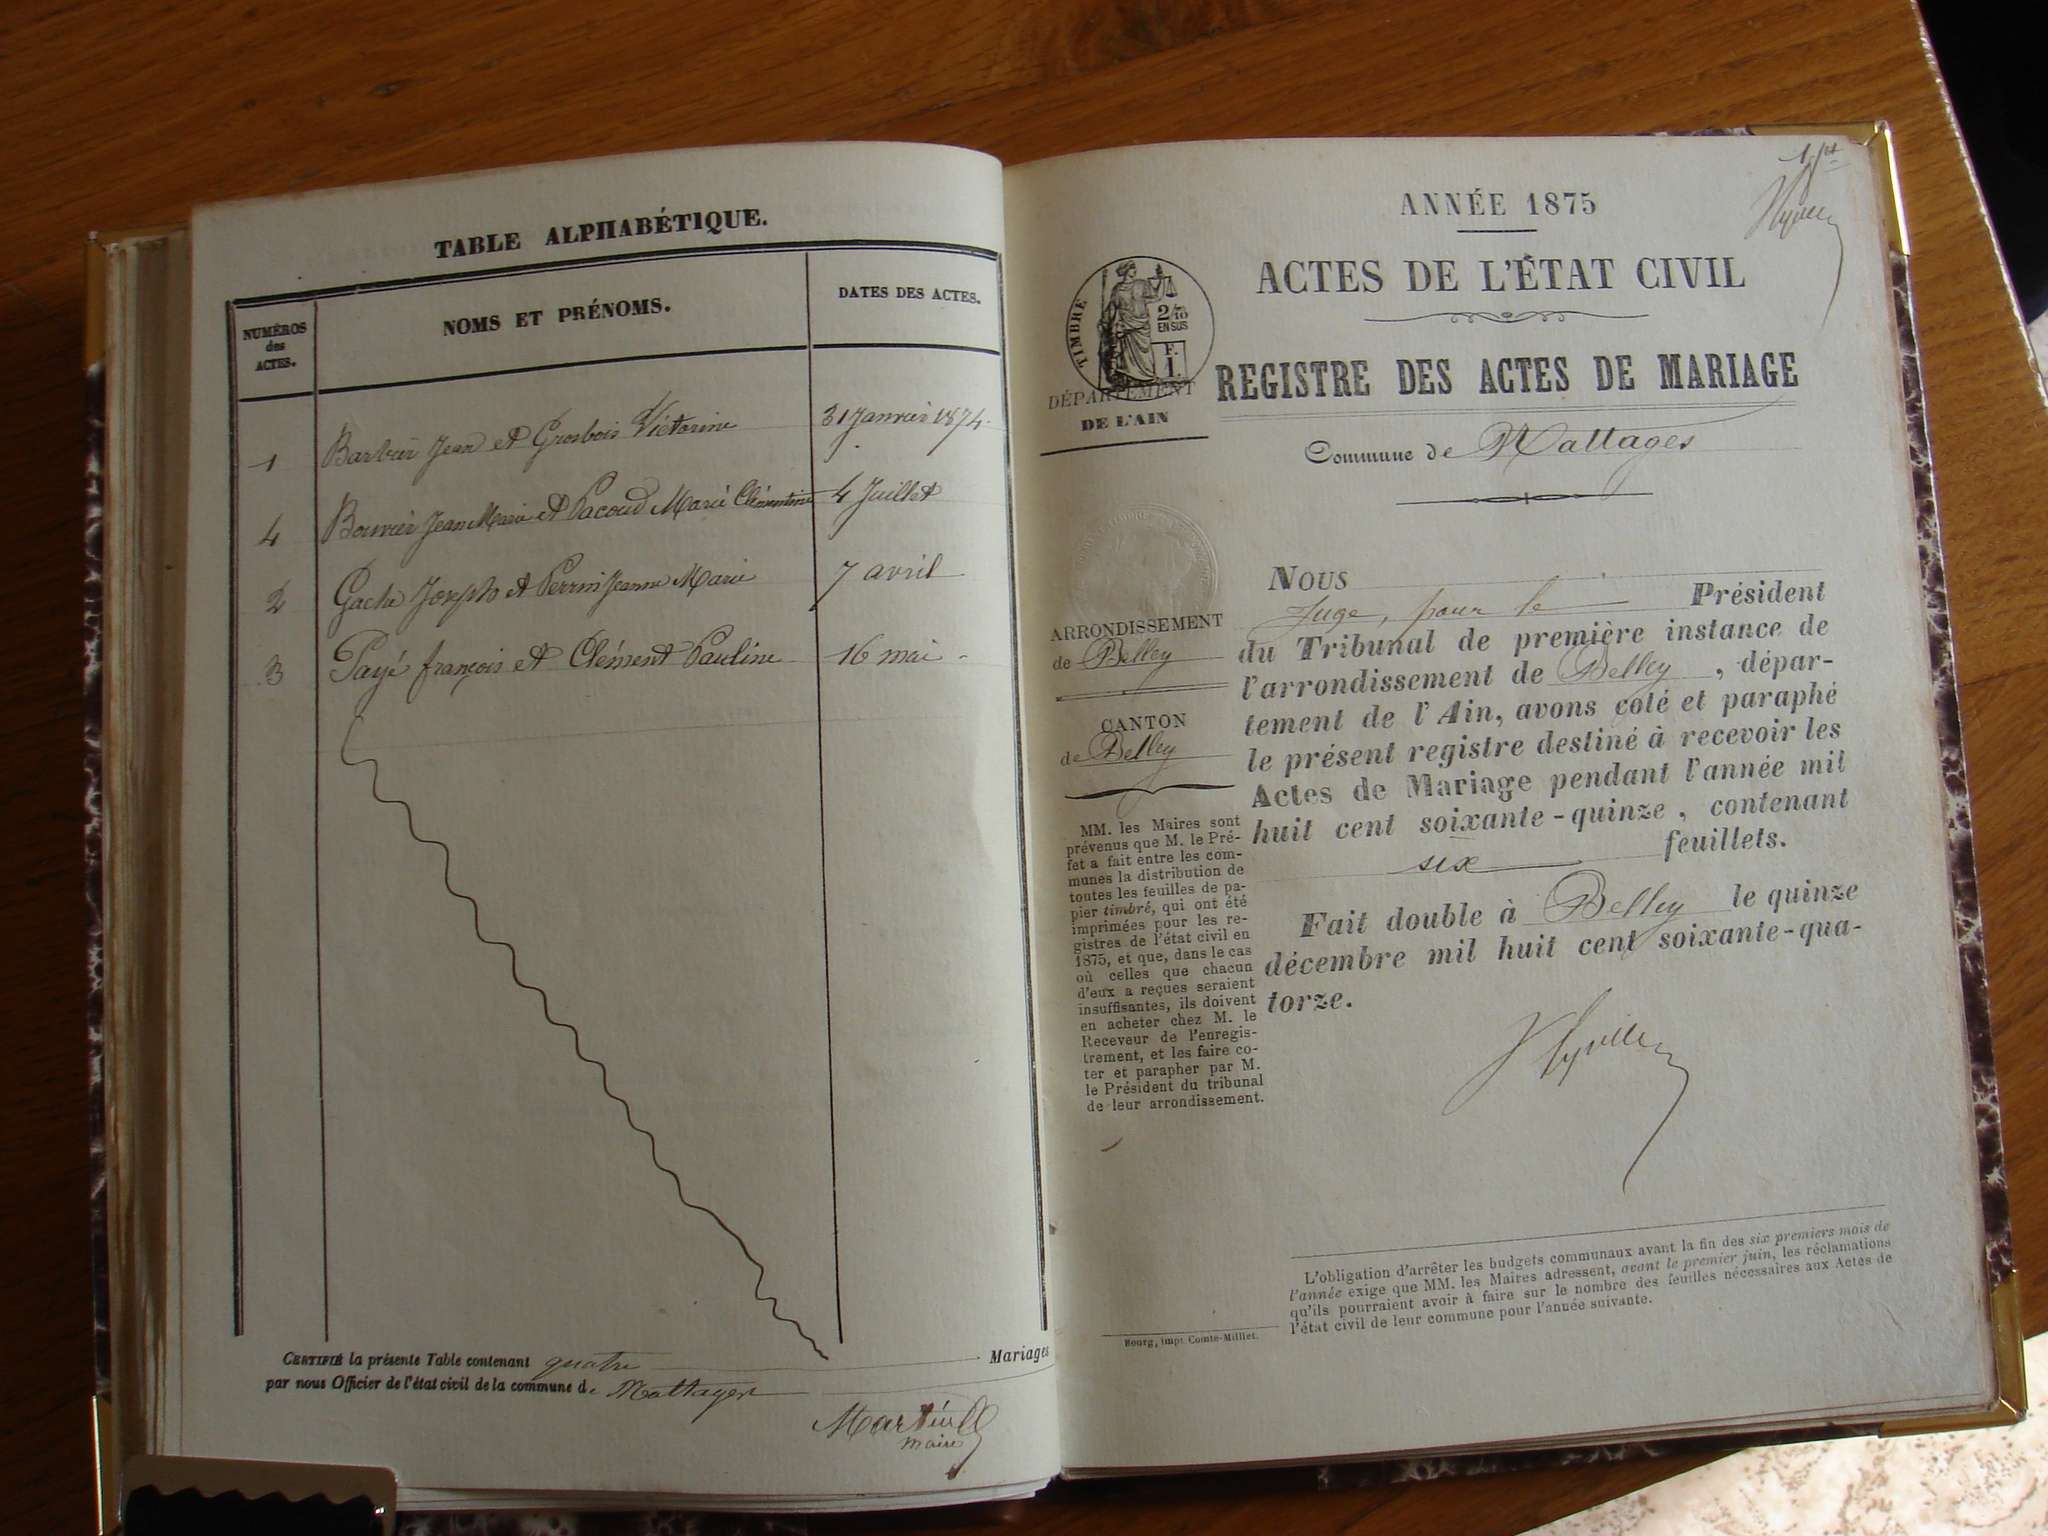 TABLE ALPHABÉTIQUE.
NUMÉROS
des
ACTES.
NOMS ET PRÉNOMS.
DATES DES ACTES.
1 Barbier Jean et Grosbois Victorine 31 Janvier 1874.
4 Bouvier Jean Marie et Pacoud Marie Clémentine 4 Juillet
2 Gache Joseph et Perrin Jeanne Marie 7 avril
3 Payé françois et Clément Pauline 16 mai
CERTIFIÉ la présente Table contenant quatre Mariages
par nous Officier de l'état civil de la commune de Nattages
maire
1er
ANNÉE 1875
ACTES DE L'ÉTAT CIVIL
TIMBRE
2/10
EN SUS
F.
1.
REGISTRE DES ACTES DE MARIAGE
DÉPARTEMENT
DE L'AIN
Commune de Nattages
ARRONDISSEMENT
de Belley
CANTON
de Belley
MM. les Maires sont
prévenus que M. le Pré-
fet a fait entre les com-
munes la distribution de
toutes les feuilles de pa-
pier timbré, qui ont été
imprimées pour les re-
gistres de l'état civil en
1875, et que, dans le cas
où celles que chacun
d'eux a reçues seraient
insuffisantes, ils doivent
en acheter chez M. le
Receveur de l'enregis-
trement, et les faire co-
ter et parapher par M.
le Président du tribunal
de leur arrondissement.
NOUS
Juge, pour le Président
du Tribunal de première instance de
l'arrondissement de Belley, dépar-
tement de l'Ain, avons coté et paraphé
le présent registre destiné à recevoir les
Actes de Mariage pendant l'année mil
huit cent soixante-quinze, contenant
six feuillets.
Fait double à Belley le quinze
décembre mil huit cent soixante-qua-
torze.
L'obligation d'arrêter les budgets communaux avant la fin des six premiers mois de
l'année exige que MM. les Maires adressent, avant le premier juin, les réclamations
qu'ils pourraient avoir à faire sur le nombre des feuilles nécessaires aux Actes de
l'état civil de leur commune pour l'année suivante.
Bourg, impr. Comte-Milliet.